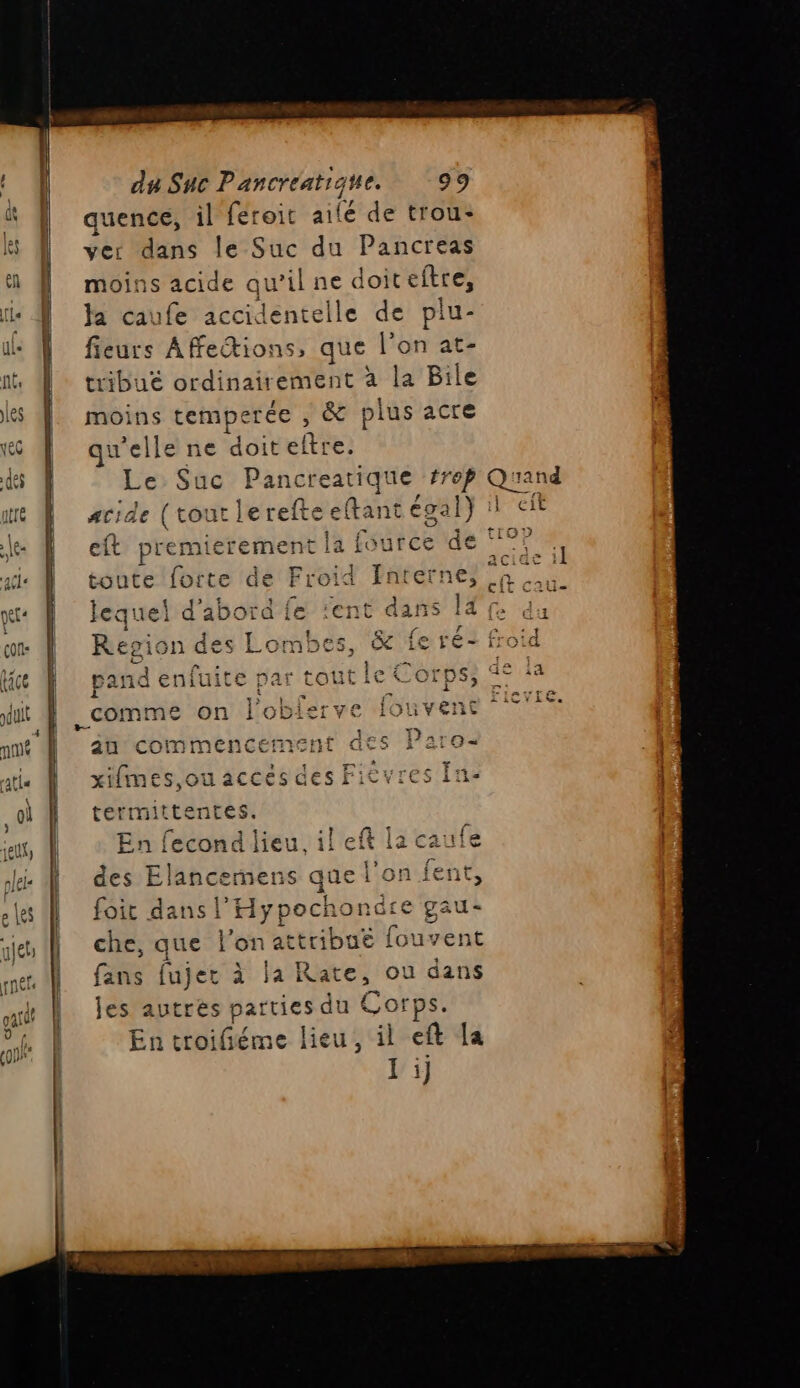 du Suc Pancreatique. 99
quence, il ſeroit aiſé de trou-
ver dans le Suc du Pancreas
moins acide qu'il ne doit eſtre,
la cauſe accidentelle de plu-
ſieurs Affections, que l'on at-
tribuë ordinairement à la Bile
moins temperée, & plus acre
qu'elle ne doit eſtre.
Le Suc Pancreatique trop
acide (tout le reſte eſtant égal)
eſt premierement la ſource de
toute ſorte de Froid Interne,
lequel d'abord ſe ſent dans la
Region des Lombes, & ſe ré-
pand enſuite par tout le Corps,
comme on l'obſerve ſouvent
au commencement des Paro-
xiſmes, ou accés des Fiévres In-
termittentes.
Quand
il eſt
trop
acide il
eſt cau-
ſe du
froid
de la
Fievre.
En ſecond lieu, il eſt la cauſe
des Elancemens que l'on ſent,
ſoit dans l'Hypochondre gau-
che, que l'on attribuë ſouvent
ſans ſujet à la Rate, ou dans
les autres parties du Corps.
En troiſiéme lieu, il eſt la
I ij